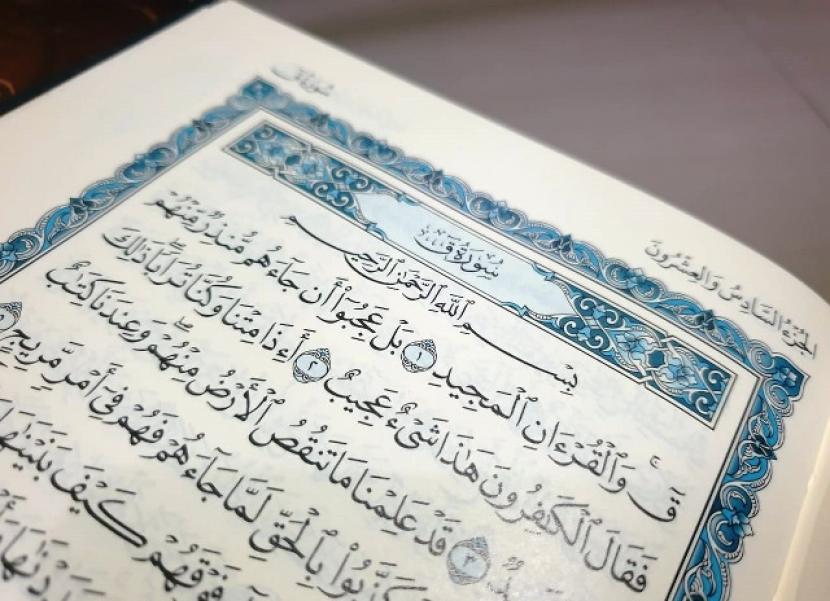 سُورَةُ ق
الجُزْءُ السَّادِسُ وَالعِشْرُونَ
سُورَةُ ق
بِسْمِ ٱللَّهِ ٱلرَّحْمَٰنِ ٱلرَّحِيمِ
قٓ وَٱلْقُرْءَانِ ٱلْمَجِيدِ ١ بَلْ عَجِبُوٓا۟ أَن جَآءَهُم مُّنذِرٌ مِّنْهُمْ
فَقَالَ ٱلْكَٰفِرُونَ هَٰذَا شَىْءٌ عَجِيبٌ ٢ أَءِذَا مِتْنَا وَكُنَّا تُرَابًا ذَٰلِكَ
٣ قَدْ عَلِمْنَا مَا تَنقُصُ ٱلْأَرْضُ مِنْهُمْ وَعِندَنَا كِتَٰبٌ
كَذَّبُوا۟ بِٱلْحَقِّ لَمَّا جَآءَهُمْ فَهُمْ فِىٓ أَمْرٍ مَّرِيجٍ
فَوْقَهُمْ كَيْفَ بَنَيْنَٰهَا